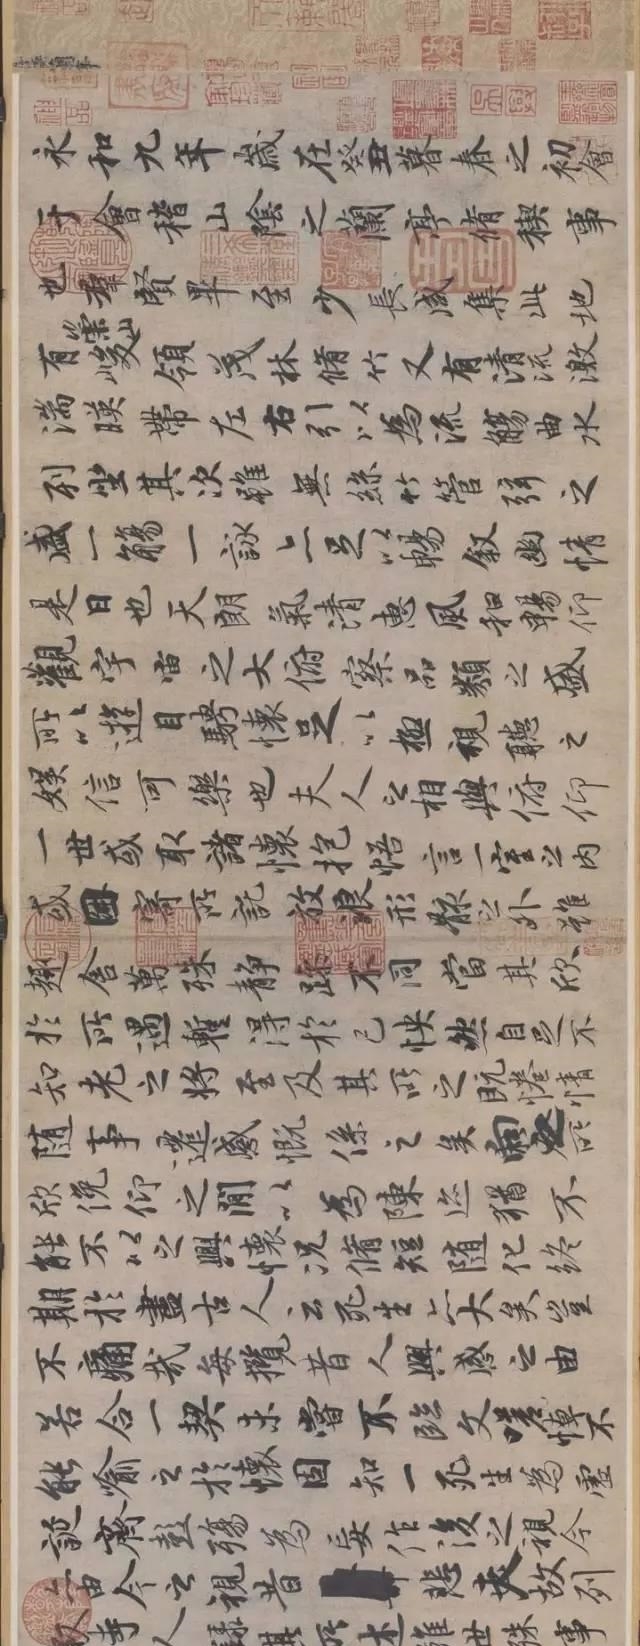 永和九年歲在癸丑暮春之初會
于會稽山陰之蘭亭脩稧事
也群賢畢至少長咸集此地
有崇山峻領茂林脩竹又有清流激
湍暎帶左右引以為流觴曲水
列坐其次雖無絲竹管弦之
盛一觴一詠亦足以暢敘幽情
是日也天朗氣清惠風和暢仰
觀宇宙之大俯察品類之盛
所以遊目騁懷足以極視聽之
娛信可樂也夫人之相與俯仰
一世或取諸懷抱悟言一室之內
或因寄所託放浪形骸之外雖
趣舍萬殊靜躁不同當其欣
於所遇暫得於己怏然自足不
知老之將至及其所之既惓情
隨事遷感慨係之矣向之所
欣俛仰之閒以為陳迹猶不
能不以之興懷況脩短隨化終
期於盡古人云死生亦大矣豈
不痛哉每攬昔人興感之由
若合一契未嘗不臨文嗟悼不
能喻之於懷固知一死生為虛
誕齊彭殤為妄作後之視今
亦由今之視昔悲夫故列
敘時人錄其所述雖世殊事